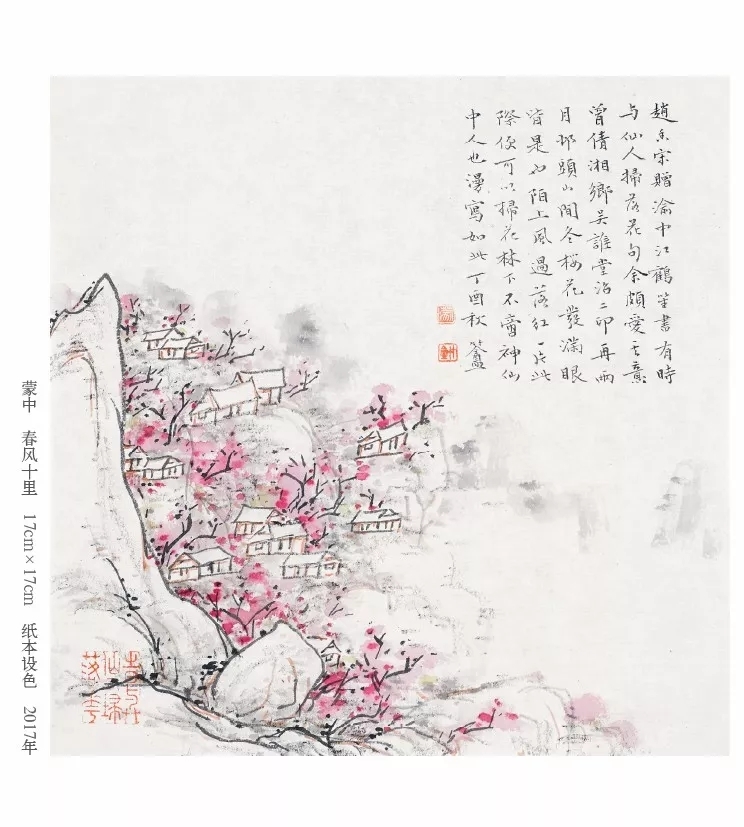 趙香宋贈渝中江鶴笙書有時
与仙人掃落花句余頗愛之意
曾倩湘鄉吴誰堂治二印再兩
月邨頭山間冬桜花發滿眼
皆是也陌上風過落紅一片此
際便可以掃花林下不啻神仙
中人也漫寫如此丁酉秋
蒙中 春风十里 17cm×17cm 纸本设色 2017年